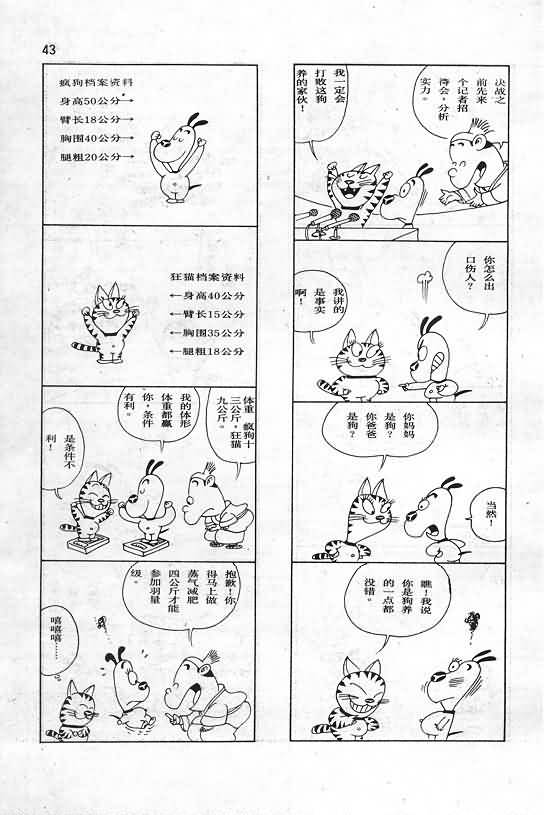 43
决战之
前先来
个记者招
待会，分析
实力。
我一定会
打败这狗
养的家伙！
你怎么出
口伤人？
我讲的
是事实
啊！
你妈妈
是狗？
你爸爸
是狗？
当然！
瞧！我说
你是狗养
的一点都
没错。
疯狗档案资料
身高50公分→
臂长18公分→
胸围40公分→
腿粗20公分→
狂猫档案资料
←身高40公分
←臂长15公分
←胸围35公分
←腿粗18公分
体重，疯狗十
三公斤，狂猫
九公斤。
我的体形
体重都赢
你，条件
有利。
是条件不
利！
抱歉！你
得马上做
蒸气减肥
四公斤才能
参加羽量
级。
嘻嘻
嘻……